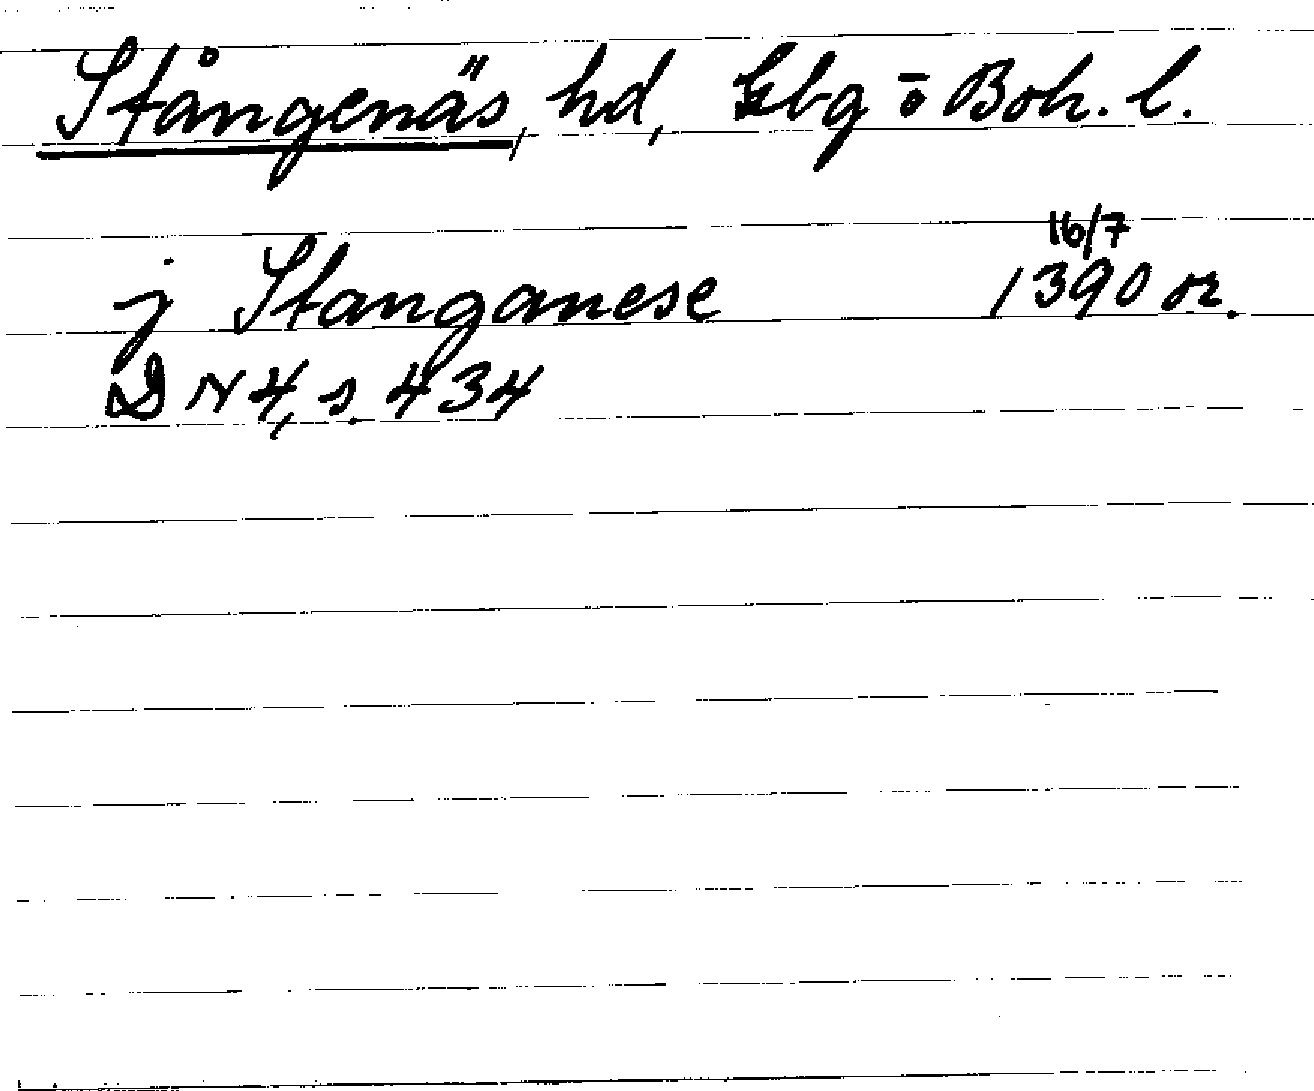 Stångenäs, hd, Gbg o Boh. l.
16/7
j Stanganese 1390 or.
DN 4, s. 434